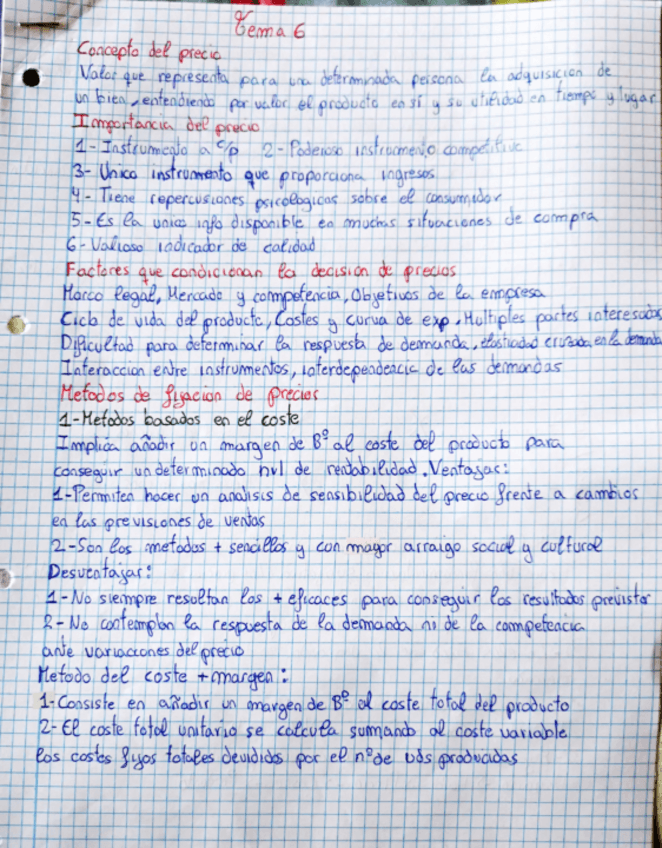 Tema 6
Concepto del precio
Valor que representa para una determinada persona la adquisicion de
un bien, entendiendo por valor el producto en sí y su utilidad en tiempo y lugar
Importancia del precio
1-Instrumento a c/p 2-Poderoso instrumento competitivo
3- Unico instrumento que proporciona ingresos
4- Tiene repercusiones psicologicas sobre el consumidor
5-Es la unica info disponible en muchas situaciones de compra
6-Valioso indicador de calidad
Factores que condicionan la decision de precios
Marco legal, Mercado y competencia, Objetivos de la empresa
Ciclo de vida del producto, Costes y curva de exp, Multiples partes interesadas
Dificultad para determinar la respuesta de demanda, elasticidad cruzada en la demanda
Interaccion entre instrumentos, interdependencia de las demandas
Metodos de fijacion de precios
1-Metodos basados en el coste
Implica añadir un margen de Bº al coste del producto para
conseguir un determinado nvl de rentabilidad. Ventajas:
1-Permiten hacer un analisis de sensibilidad del precio frente a cambios
en las previsiones de ventas
2-Son los metodos + sencillos y con mayor arraigo social y cultural
Desventajas:
1-No siempre resultan los + eficaces para conseguir los resultados previstos
2-No contemplan la respuesta de la demanda ni de la competencia
ante variaciones del precio
Metodo del coste + margen:
1-Consiste en añadir un margen de Bº al coste total del producto
2-El coste total unitario se calcula sumando al coste variable
los costes fijos totales devididos por el nº de uds producidas